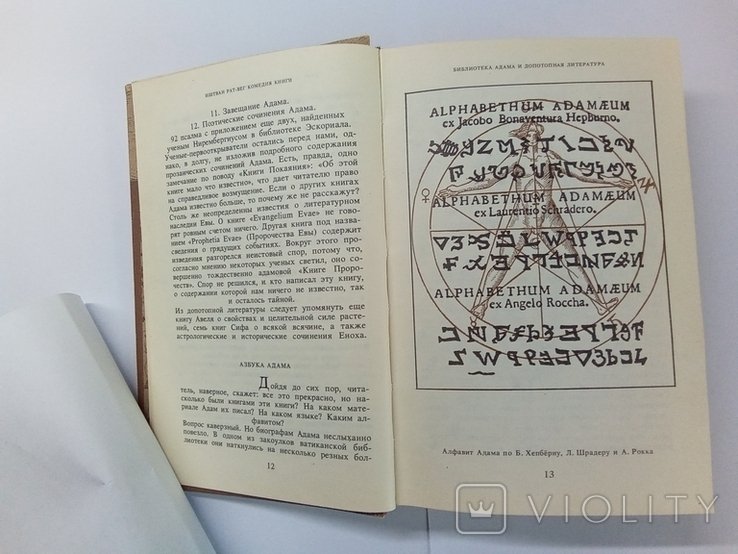 ИШТВАН РАТ-ВЕГ КОМЕДИЯ КНИГИ
11. Завещание Адама.
12. Поэтические сочинения Адама.
92 псалма с приложением еще двух, найденных
ученым Нирембергиусом в библиотеке Эскориала.
Ученые-первооткрыватели остались перед нами, од-
нако, в долгу, не изложив подробного содержания
прозаических сочинений Адама. Есть, правда, одно
замечание по поводу «Книги Покаяния»: «Об этой
книге мало что известно», что дает читателю право
на справедливое возмущение. Если о других книгах
Адама известно больше, то почему ж не расскажут?
Столь же неопределенны известия о литературном
наследии Евы. О книге «Evangelium Evae» не гово-
рят ровным счетом ничего. Другая книга под назва-
нием «Prophetia Evae» (Пророчества Евы) содержит
сведения о грядущих событиях. Вокруг этого про-
изведения разгорелся неистовый спор, потому что,
согласно мнению некоторых ученых светил, оно со-
вершенно тождественно адамовой «Книге Проро-
честв». Спор не решился, и кто написал эту книгу,
о содержании которой нам ничего не известно, так
и осталось тайной.
Из допотопной литературы следует упомянуть еще
книгу Авеля о свойствах и целительной силе расте-
ний, семь книг Сифа о всякой всячине, а также
астрологические и исторические сочинения Еноха.
АЗБУКА АДАМА
Дойдя до сих пор, чита-
тель, наверное, скажет: все это прекрасно, но на-
сколько были книгами эти книги? На каком мате-
риале Адам их писал? На каком языке? Каким ал-
фавитом?
Вопрос каверзный. Но биографам Адама неслыханно
повезло. В одном из закоулков ватиканской биб-
лиотеки они наткнулись на несколько резных бол-
12
БИБЛИОТЕКА АДАМА И ДОПОТОПНАЯ ЛИТЕРАТУРА
ALPHABETHUM ADAMÆUM
ex Jacobo Bonaventura Hepburno.
ALPHABETHUM ADAMÆUM
ex Laurentio Schradero.
ALPHABETHUM ADAMÆUM
ex Angelo Roccha.
Алфавит Адама по Б. Хепбёрну, Л. Шрадеру и А. Рокка
13
VIOLITY